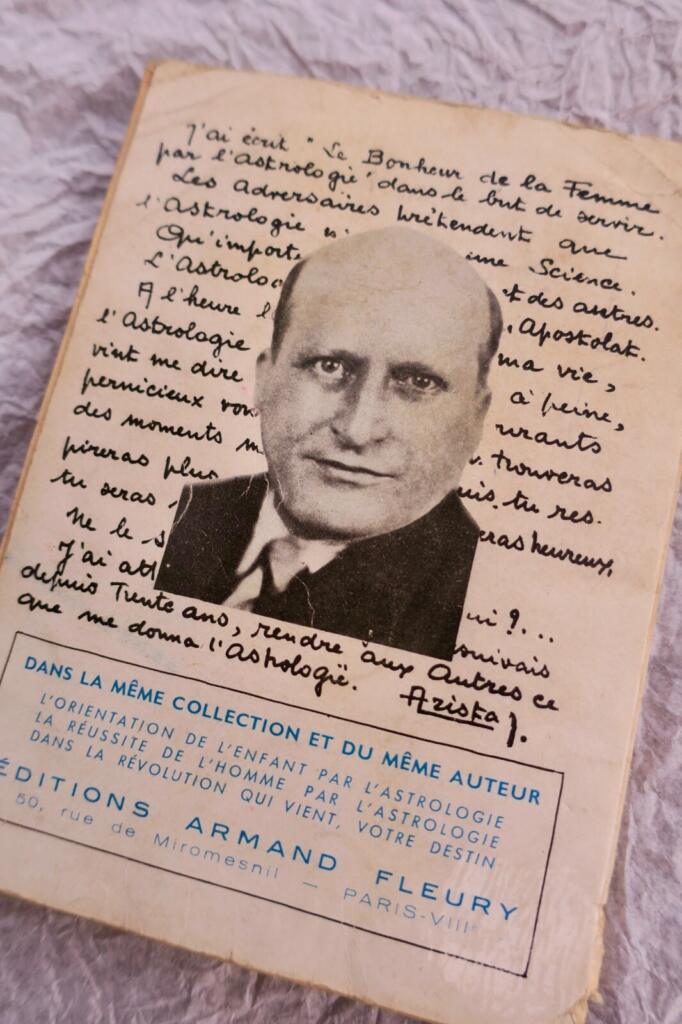 J'ai écrit "Le Bonheur de la Femme
par l'astrologie" dans le but de servir.
Les adversaires prétendent que
l'Astrologie n' une Science.
Qu'importe
L'Astrolo et des astres.
A l'heure , Apostolat.
l'Astrologie ma vie,
vint me dire à peine,
pernicieux
des moments trouveras
pireras plus tu res.
tu seras heureux,
Ne le
J'ai ?...
depuis Trente ans, rendre aux Autres ce
que me donna l'Astrologie. Arista J.
DANS LA MÊME COLLECTION ET DU MÊME AUTEUR
L'ORIENTATION DE L'ENFANT PAR L'ASTROLOGIE
LA RÉUSSITE DE L'HOMME PAR L'ASTROLOGIE
DANS LA RÉVOLUTION QUI VIENT, VOTRE DESTIN
ÉDITIONS ARMAND FLEURY
50, rue de Miromesnil — PARIS-VIIIe